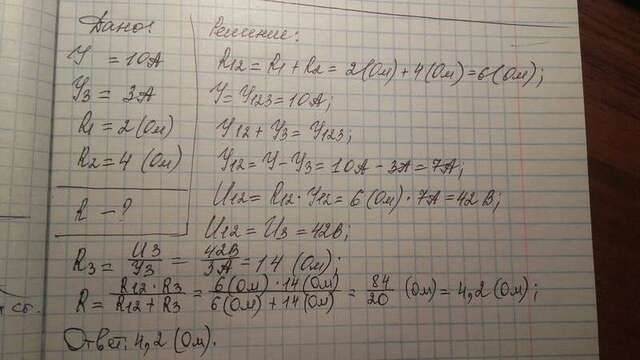 Дано:
У = 10А
У3 = 3А
R1 = 2 (Ом)
R2 = 4 (Ом)
R - ?
Решение:
R12 = R1 + R2 = 2(Ом) + 4(Ом) = 6(Ом);
У = У123 = 10А;
У12 + У3 = У123;
У12 = У - У3 = 10А - 3А = 7А;
U12 = R12 · У12 = 6(Ом) · 7А = 42В;
U12 = U3 = 42В;
R3 = U3/У3 = 42В/3А = 14 (Ом);
R = R12 · R3/R12 + R3 = 6(Ом) · 14(Ом)/6(Ом) + 14(Ом) = 84/20 (Ом) = 4,2 (Ом);
Ответ: 4,2 (Ом).